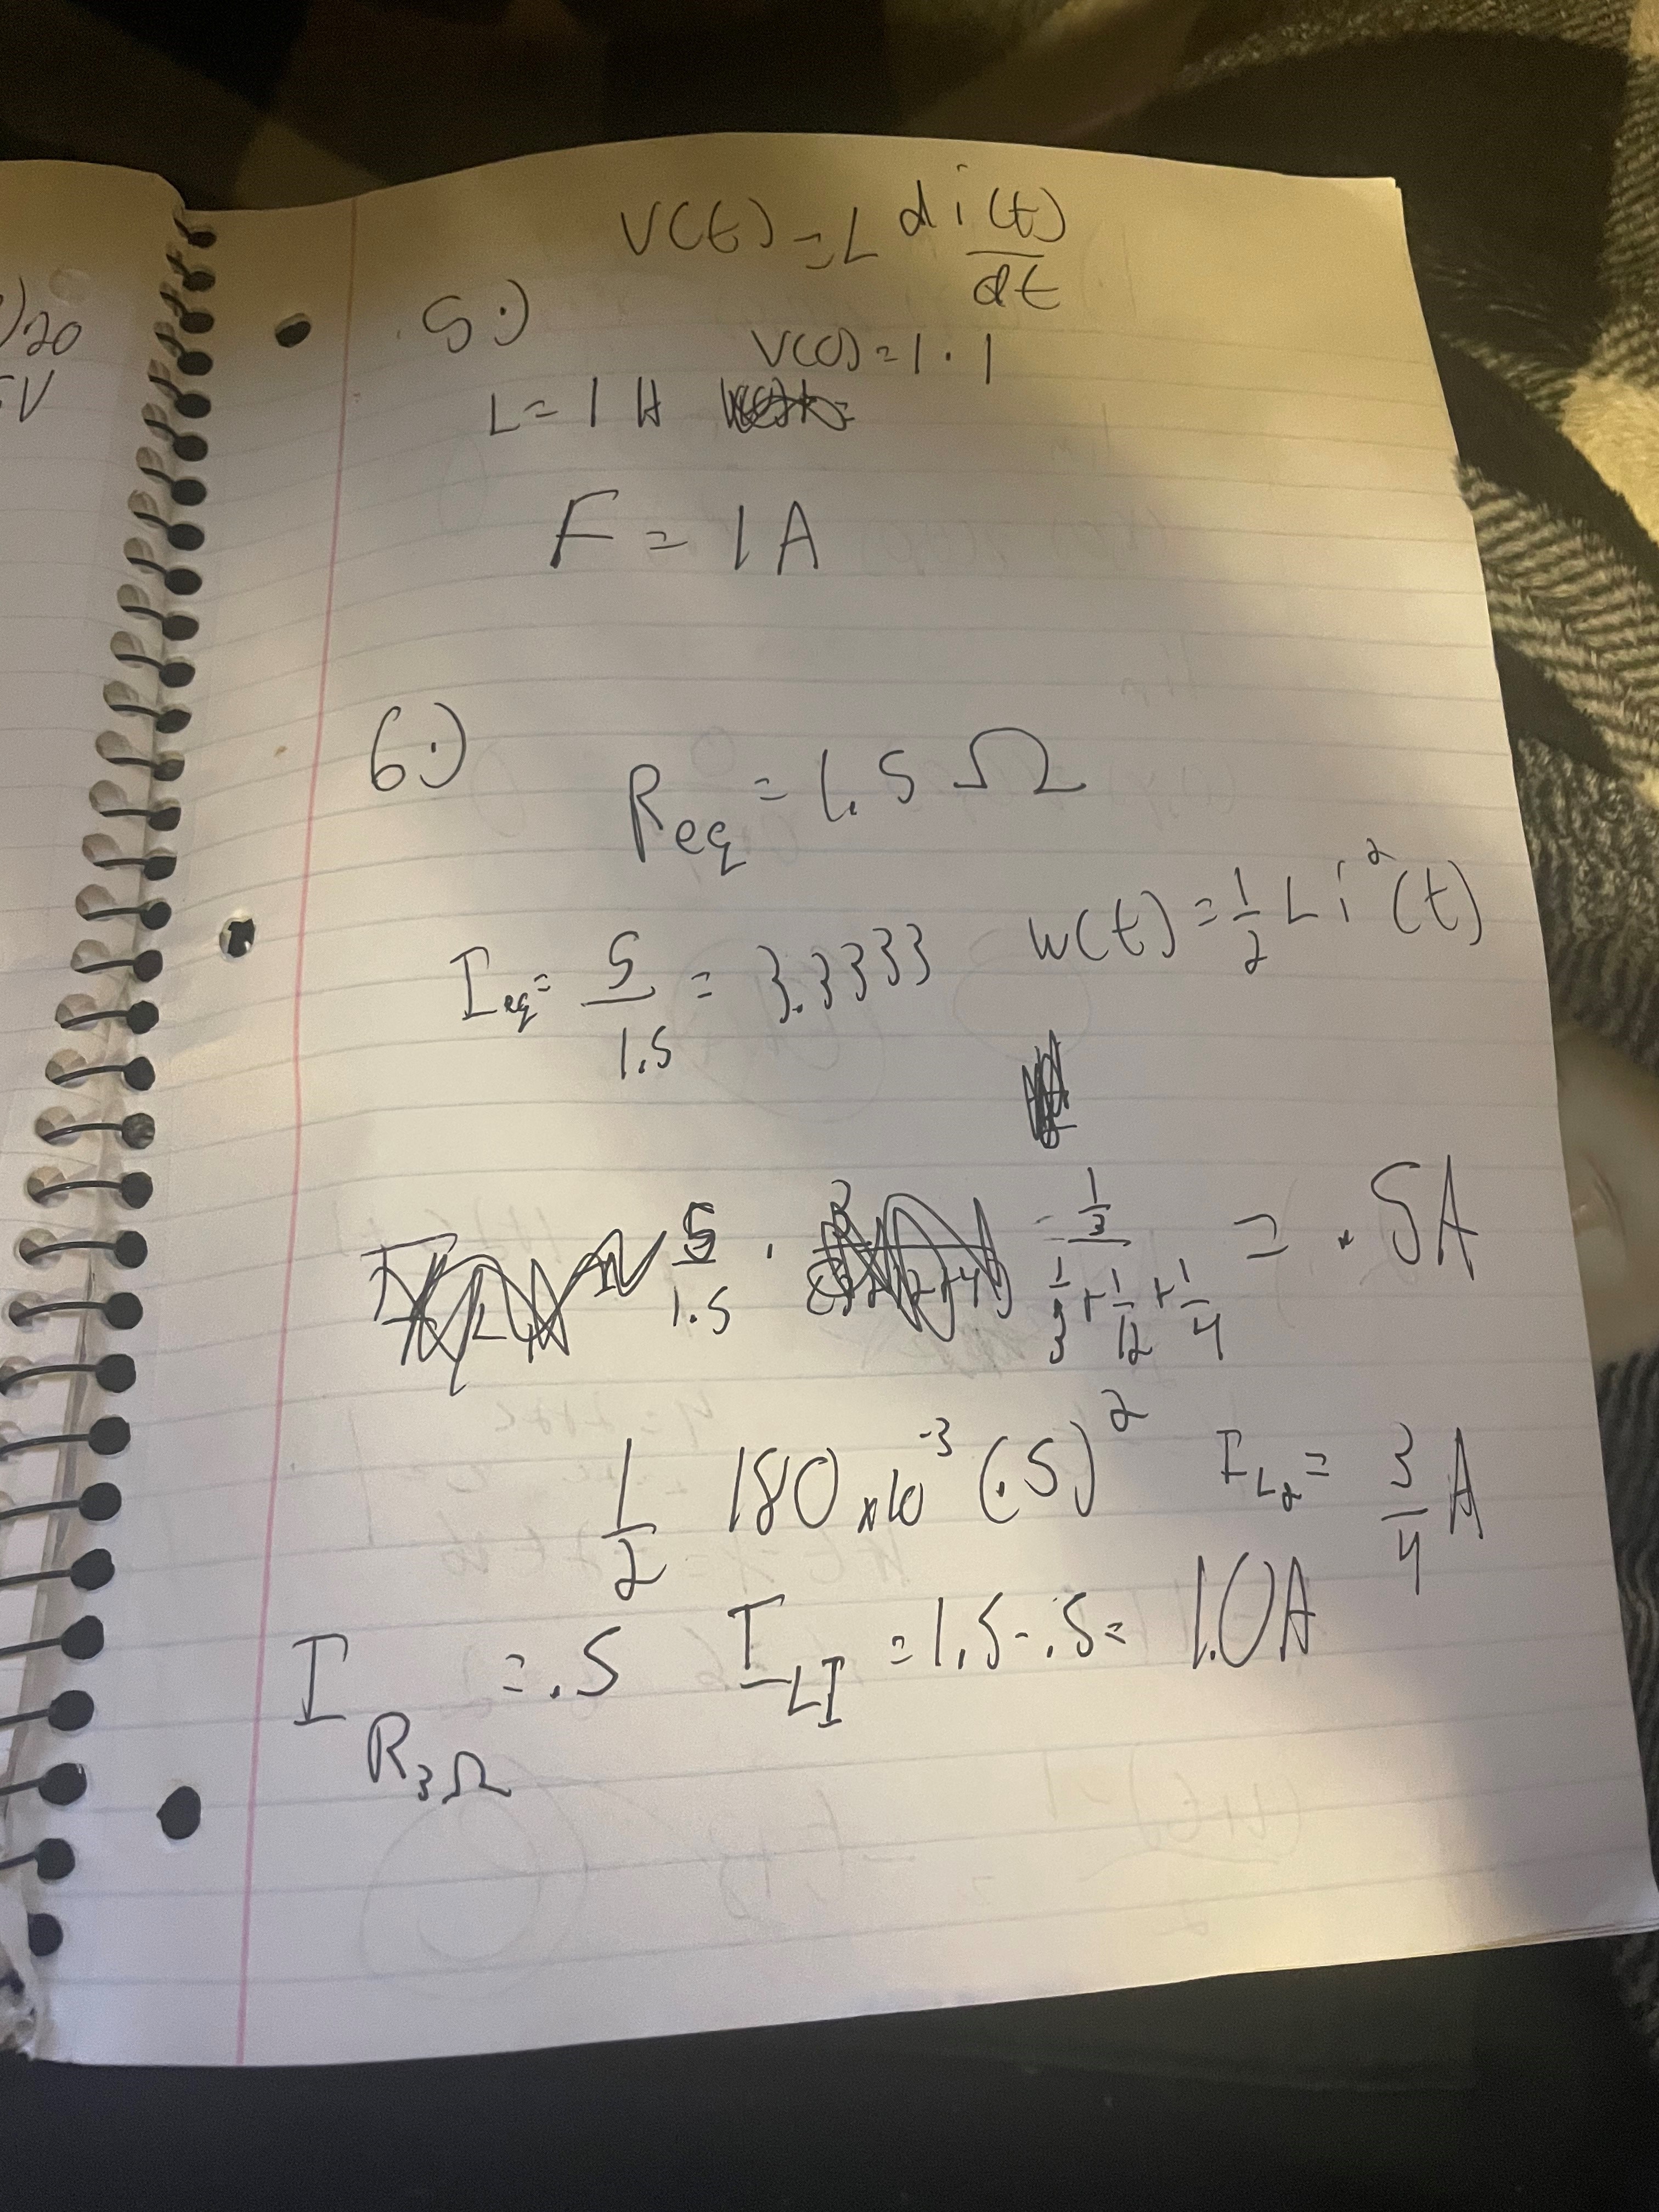 )20
V
V(t) = L di(t)/dt
5.)
V(0) = 1 · 1
L = 1 H
F = 1 A
6.)
Req = 1.5 Ω
Ieq = 5/1.5 = 3.3333 w(t) = 1/2 L i²(t)
5/1.5 · (1/3)/(1/3 + 1/12 + 1/4) = .5A
1/2 180 x10^-3 (.5)^2 I_L2 = 3/4 A
I_R3Ω = .5 I_LI = 1.5 - .5 = 1.0A